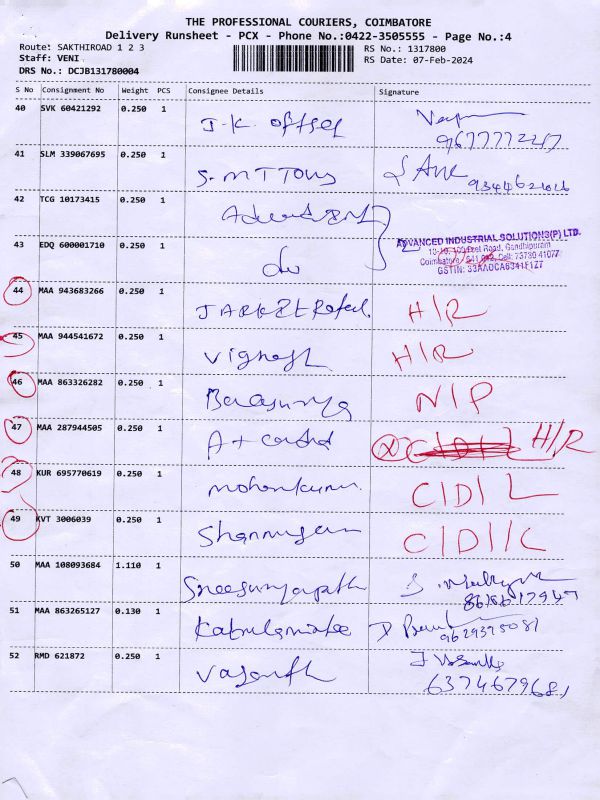 THE PROFESSIONAL COURIERS, COIMBATORE
Delivery Runsheet - PCX - Phone No.:0422-3505555 - Page No.:4
Route: SAKTHIROAD 1 2 3 RS No.: 1317800
Staff: VENI RS Date: 07-Feb-2024
DRS No.: DCJB131780004
S No Consignment No Weight PCS Consignee Details Signature
40 SVK 60421292 0.250 1 J-K offset
9677772247
41 SLM 339067695 0.250 1 S.M T Tours
42 TCG 10173415 0.250 1
ADVANCED INDUSTRIAL SOLUTIONS(P) LTD.
43 EDQ 600001710 0.250 1 do
Coimbatore
GSTIN: 33AAOCA6341F1Z7
44 MAA 943683266 0.250 1 H/R
45 MAA 944541672 0.250 1 Vignesh H/R
46 MAA 863326282 0.250 1 Balasurya N/P
47 MAA 287944505 0.250 1 A+ H/R
48 KUR 695770619 0.250 1 mohankumar C/D/L
49 KVT 3006039 0.250 1 Shanmugam C/D/L
50 MAA 108093684 1.110 1 Sreesuryapath
51 MAA 863265127 0.130 1
9629375081
52 RMD 621872 0.250 1 Vasanth
6374679681